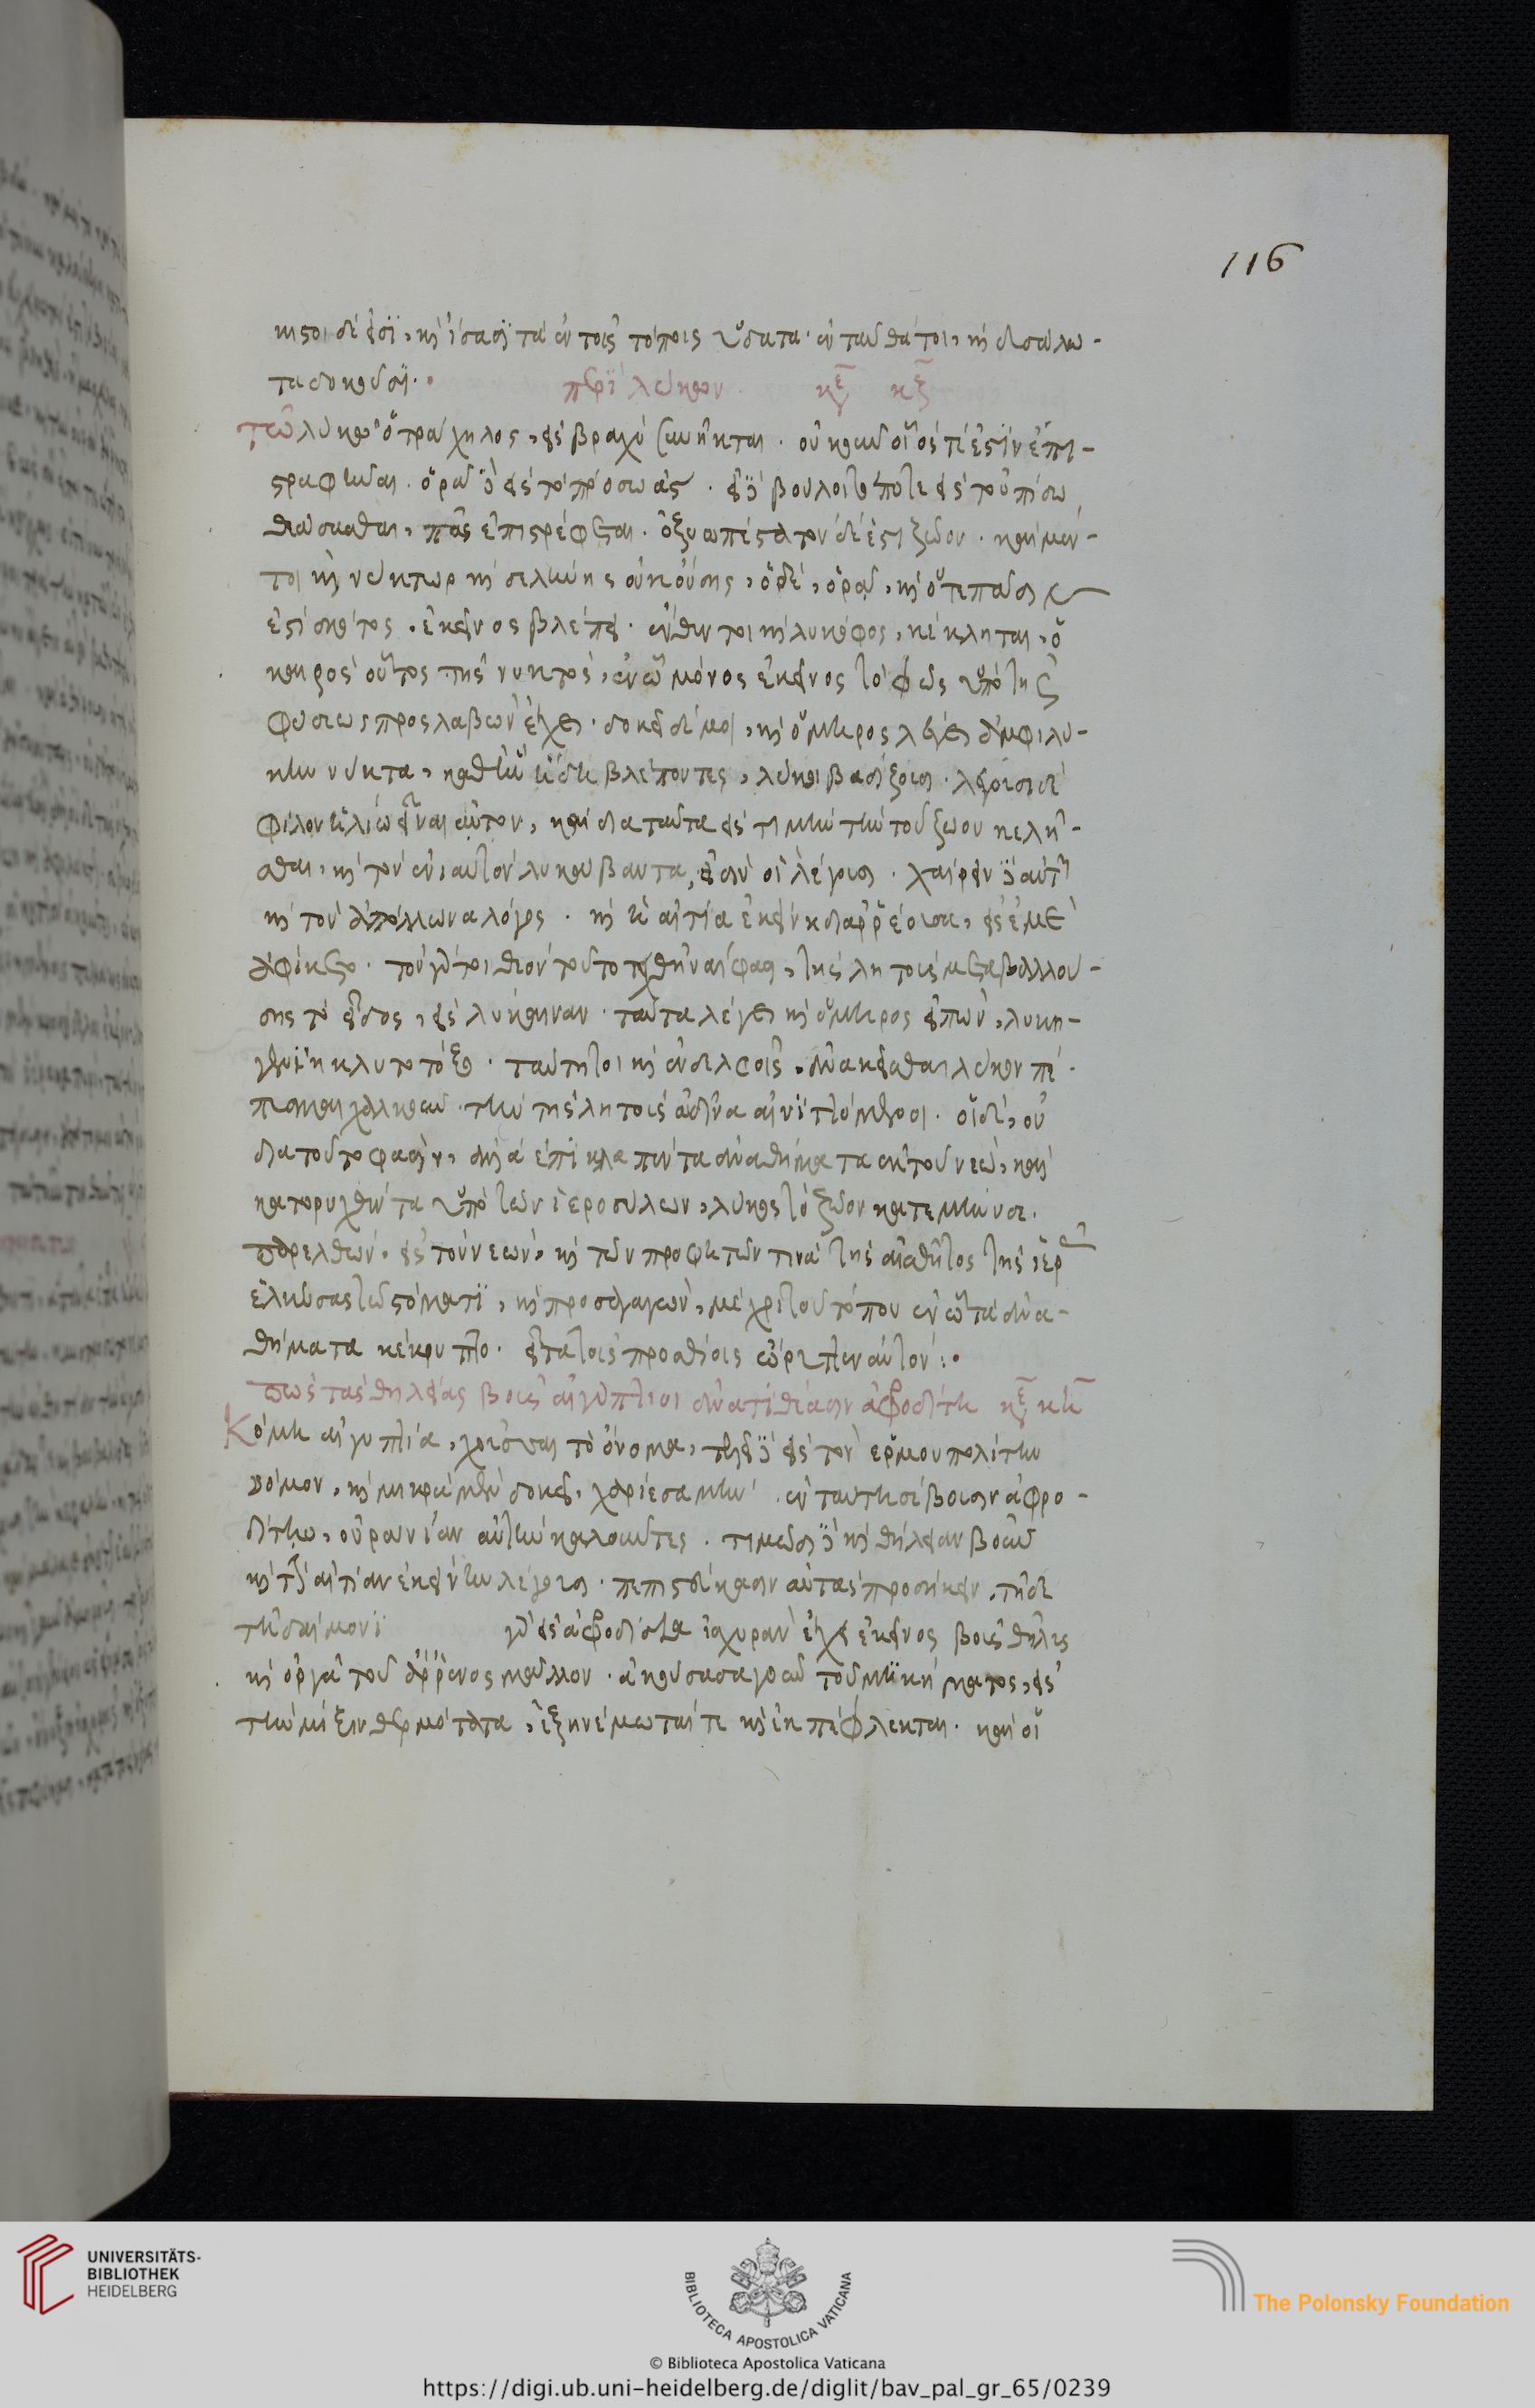 νιστοι δέ εἰσϊ, καὶ ἴσασϊ τὰ ἐν τοῖς τόποις ὕδατα· ἐνταῦθά τοι, καὶ δισάλω-
τα δοκοῦσϊ·
περὶ λύκου κε̅ κϛ̅
τῶ λύκω ὁ τράχηλος, ἐς βραχὺ συνῆκται· οὔκουν οἷός τέ ἐστϊν ἐπι-
στραφῆναι· ὁρᾶ δὲ ἐς τὸ πρόσω ἀεί· εἰ δὲ βούλοιτό ποτε ἐς τοὐπίσω
θεάσασθαι, πᾶς ἐπιστρέφεται· ὀξυωπέστατον δέ ἐστι ζῶον· καὶ μέν-
τοι καὶ νύκτωρ καὶ σελήνης οὐκ οὔσης, ὅδε, ὁρᾷ, καὶ ὅτε πᾶσιν
ἐστὶ σκότος, ἐκεῖνος βλέπει· ἔνθεν τοι καὶ λυκόφως, κέκληται, ὁ
καιρὸς οὗτος τῆς νυκτὸς, ἐν ᾧ μόνος ἐκεῖνος τὸ φῶς ὑπὸ τῆς
φύσεως προςλαβὼν ἔχει· δοκεῖ δέ μοι, καὶ ὅμηρος λέγειν ἀμφιλύ-
κην νύκτα, καθ' ἣν ἤδη βλέποντες, λύκοι βαδίζουσι· λέγουσι δὲ
φίλον ἡλίω εἶναι αὐτον, καὶ διὰ ταῦτα ἐς τιμὴν τὴν τοῦ ζώου κεκλῆ-
σθαι, καὶ τὸν ἐνιαυτὸν λυκάβαντα, εἰσὶν οἳ λέγουσι· χαίρειν δὲ αὐτῶ
καὶ τὸν ἀπόλλωνα λόγος· καὶ ἡ αἰτία ἐκείνη διαῤῥέουσα, ἐς ἐμὲ
ἀφίκετο· τὸν γάρ τοι θεὸν τοῦτο τεχθῆναί φασι, τῆς λητοῦς μεταβαλλού-
σης τὸ εἶδος, ἐς λύκαιναν· ταῦτα λέγει καὶ ὅμηρος εἰπὼν, λυκη-
γενέϊ κλυτοτόξω· ταύτη τοι καὶ ἐν δελφοῖς, ἀνακεῖσθαι λύκον πέ-
πυσμαι χαλκοῦν· τὴν τῆς λητοῦς ὠδῖνα αἰνίττόμενοι· οἳ δὲ, οὐ
διὰ τοῦτο φασὶν, ἀλλὰ ἐπεὶ κλαπέντα ἀναθήματα ἐκ τοῦ νεὼ, καὶ
κατορυχθέντα ὑπὸ τῶν ἱεροσύλων, λύκος τὸ ζῶον κατεμήνυσε·
παρελθὼν· ἐς τὸν νεὼν, καὶ τῶν προφητῶν τινὰ τῆς ἐσθῆτος τῆς ἱερᾶς
ἑλκύσας τῶ στόματϊ, καὶ προσαγαγὼν, μέχρι τοῦ τόπου ἐν ᾧ τὰ ἀνα-
θήματα κέκρυπτο· εἶτα τοῖς προσθίοις ὤρυττεν αὐτόν:·
πῶς τὰς θηλείας βοῦς αἰγύπτιοι ἀνατιθέασιν ἀφροδίτη κϛ̅ κη̅
Κόμη αἰγυπτία, χοῦσαι τὸ ὄνομα, τελεῖ δὲ ἐς τὸν ἑρμουπολίτην
νόμον, καὶ μικρὰ μὲν δοκεῖ, χαρίεσα μὴν· ἐν ταύτη σέβουσιν ἀφρο-
δίτην, οὐρανίαν αὐτὴν καλοῦντες· τιμῶσι δὲ καὶ θήλειαν βοῦν
καὶ τὴν αἰτίαν ἐκείνην λέγουσι· πεπιστεύκασιν αὐτὰς προσήκειν, τῆδε
τῆ δαίμονϊ γὰρ ἐς ἀφροδίσια ἰσχυρὰν ἔχει ἐκεῖνος βοῦς θῆλυς
καὶ ὀργᾶ τοῦ ἄῤῥενος μᾶλλον· ἀκούσασα γοῦν τοῦ μυκήματος, ἐς
τὴν μῖξιν θερμότατα, ἐξηνέμωταί τε καὶ ἐκπέφλεκται· καὶ οἵ
116
UNIVERSITÄTS-
BIBLIOTHEK
HEIDELBERG
BIBLIOTECA APOSTOLICA VATICANA
© Biblioteca Apostolica Vaticana
The Polonsky Foundation
https://digi.ub.uni-heidelberg.de/diglit/bav_pal_gr_65/0239